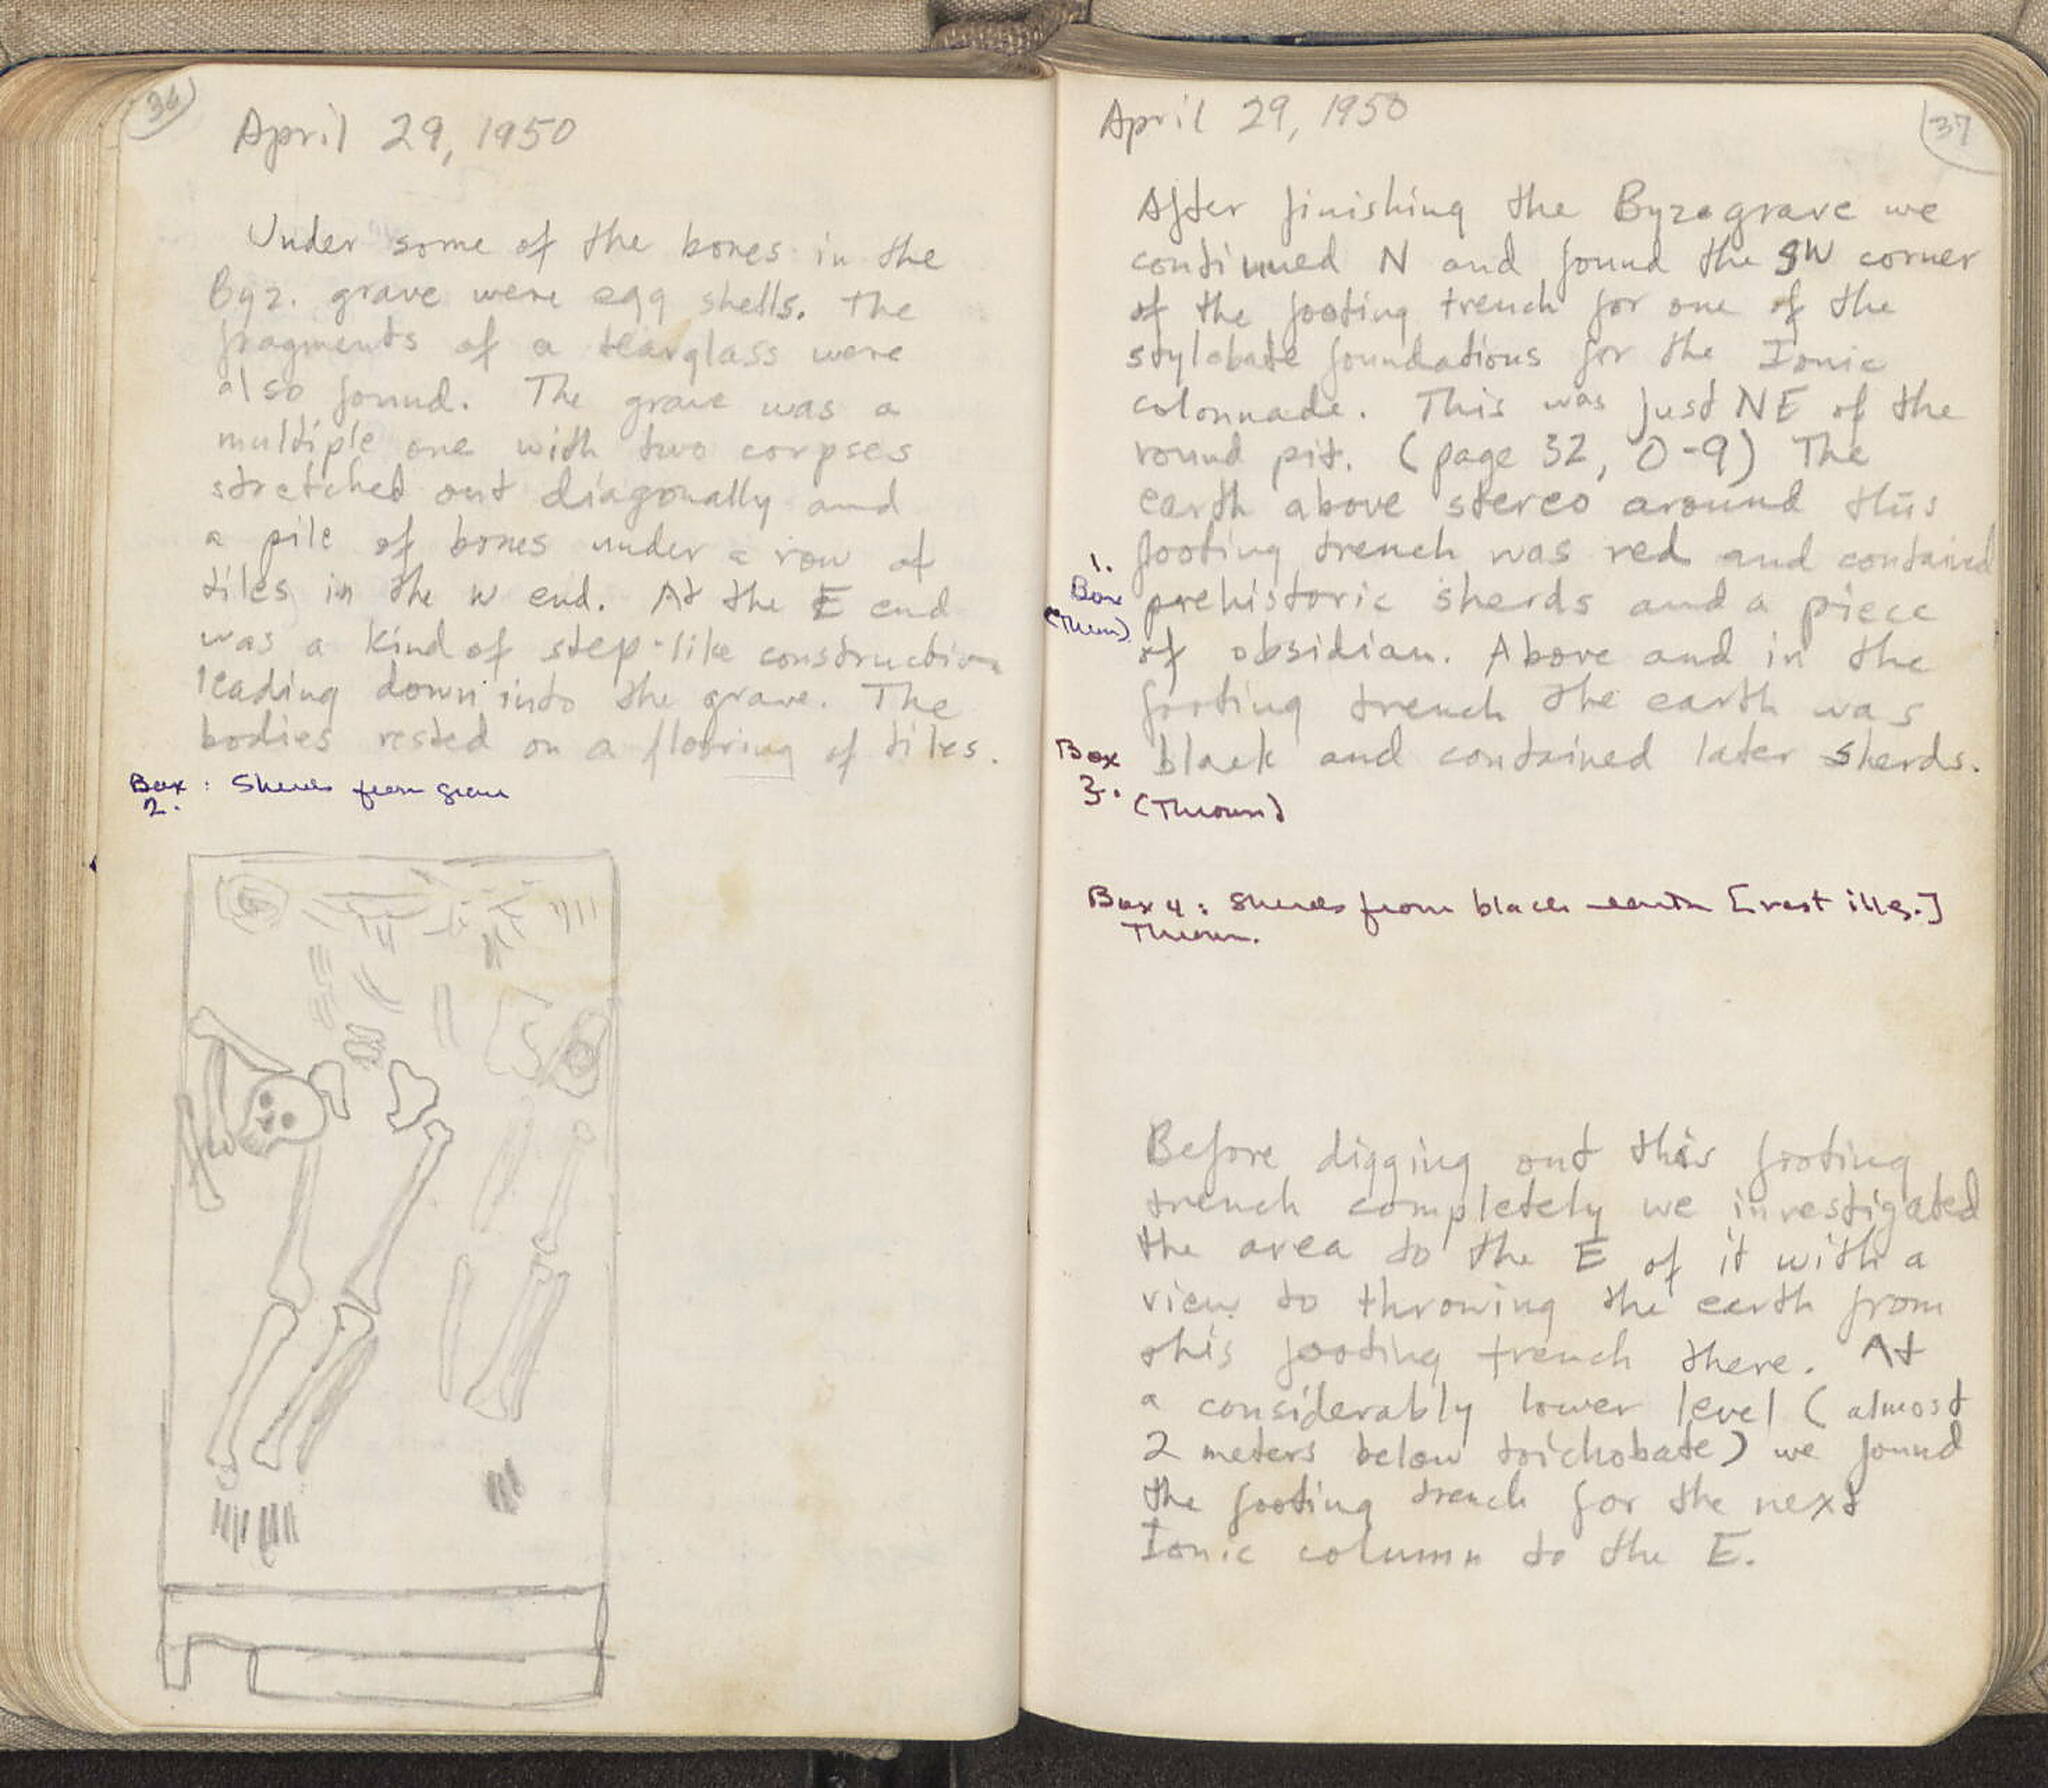 36
April 29, 1950
Under some of the bones in the
Byz. grave were egg shells. The
fragments of a tearglass were
also found. The grave was a
multiple one with two corpses
stretched out diagonally and
a pile of bones under a row of
tiles in the W end. At the E end
was a kind of step-like construction
leading down into the grave. The
bodies rested on a flooring of tiles.
Box : Sherds from grave
2.
April 29, 1950
37
After finishing the Byz. grave we
continued N and found the SW corner
of the footing trench for one of the
stylobate foundations for the Ionic
colonnade. This was just NE of the
round pit. (page 32, O-9) The
earth above stereo around this
footing trench was red and contained
1.
Box
(Thrown)
prehistoric sherds and a piece
of obsidian. Above and in the
footing trench the earth was
Box
3.
black and contained later sherds.
(Thrown)
Box 4: Sherds from black earth [rest ills.]
Thrown.
Before digging out this footing
trench completely we investigated
the area to the E of it with a
view to throwing the earth from
this footing trench there. At
a considerably lower level (almost
2 meters below toichobate) we found
the footing trench for the next
Ionic column to the E.